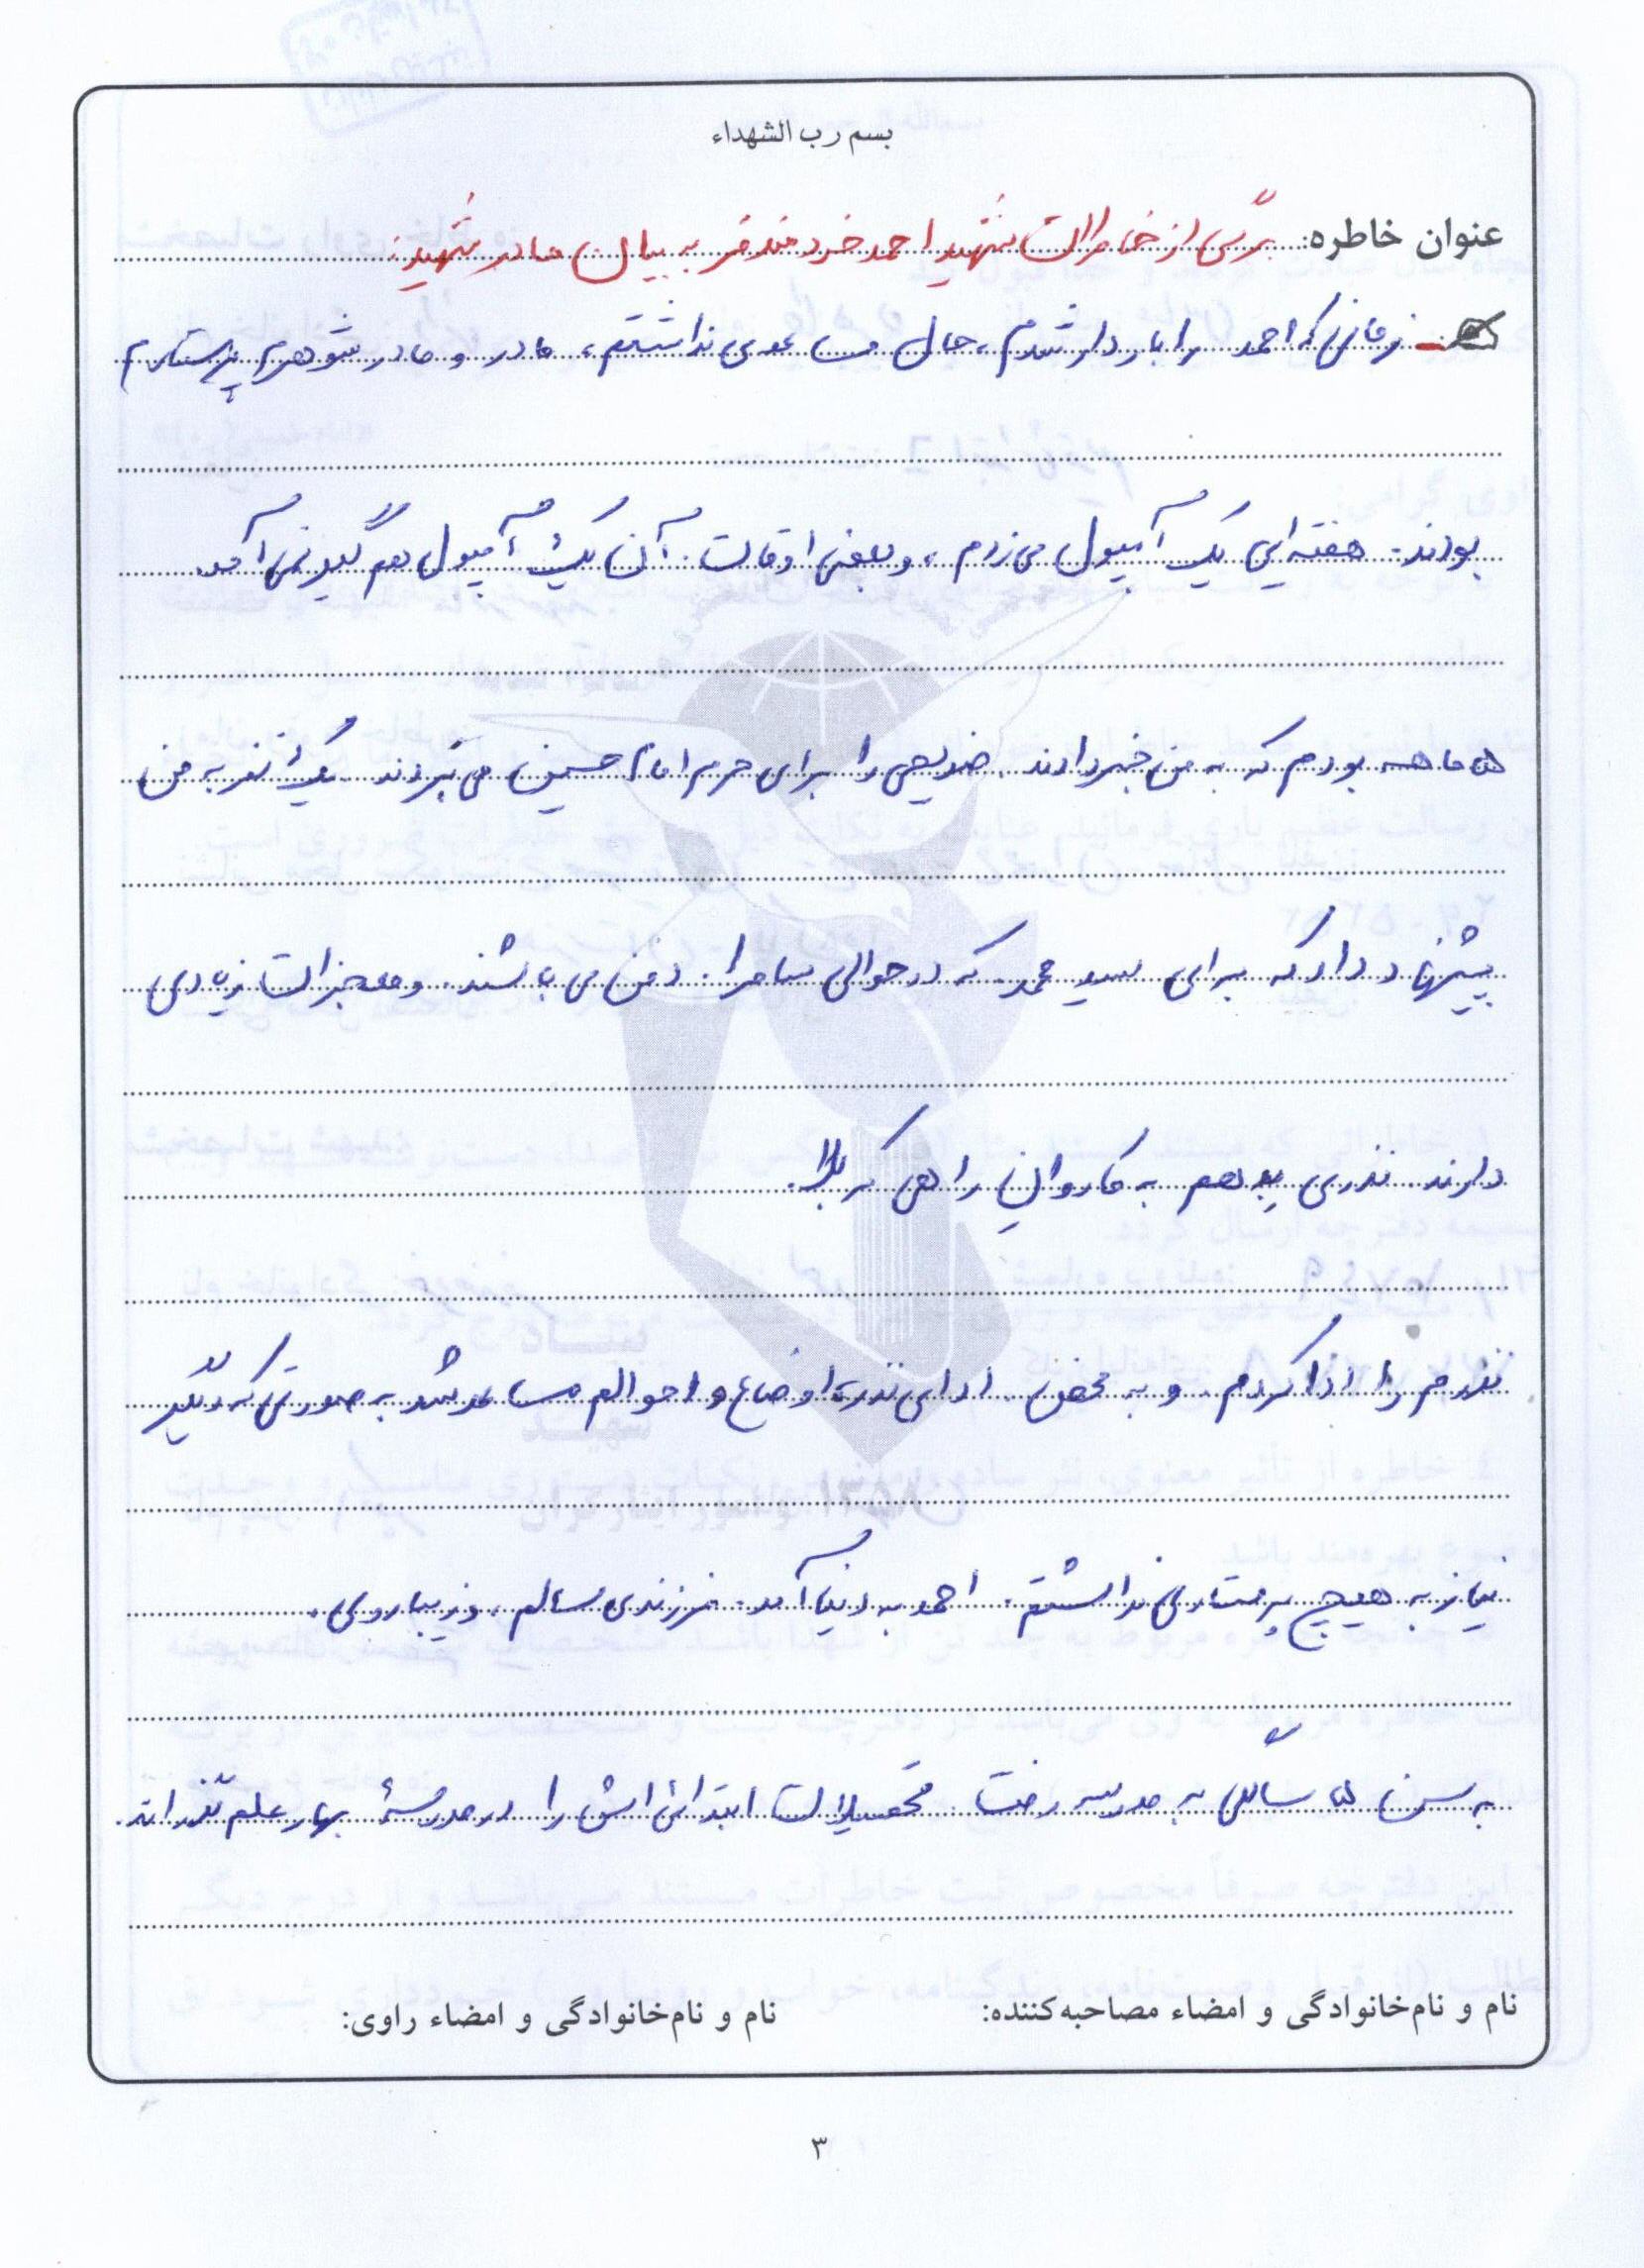 بسم رب الشهداء
عنوان خاطره: برگی از خاطرات شهید احمد خردمندفر به بیان مادر شهید:
زمانی که احمد را باردار شدم، حال مساعدی نداشتم، مادر و مادر شوهرم پرستارم
بودند. هفته‌ایی یک آمپول می‌زدم، و بعضی اوقات آن یک آمپول هم گیر نمی‌آمد.
۵ ماهه بودم که به من خبر دادند. ضریحی را برای حرم امام حسین می‌برند یک نفر به من
پیشنهاد داد که برای سید محمد که در حوالی سامرا دفن می‌باشند. و معجزات زیادی
دارند. نذری بدهم به کاروان راهی کربلا.
نذرم را ادا کردم. و به محض ادای نذر، اوضاع و احوالم مساعد شد به صورتی که دیگر
نیاز به هیچ پرستاری نداشتم. احمد به دنیا آمد. فرزندی سالم، و زیباروی.
به سن ۵ سالگی به مدرسه رفت. تحصیلات ابتدائی‌اش را در مدرسهٔ بهار علم گذراند.
نام و نام‌خانوادگی و امضاء مصاحبه‌کننده: نام و نام‌خانوادگی و امضاء راوی:
۳